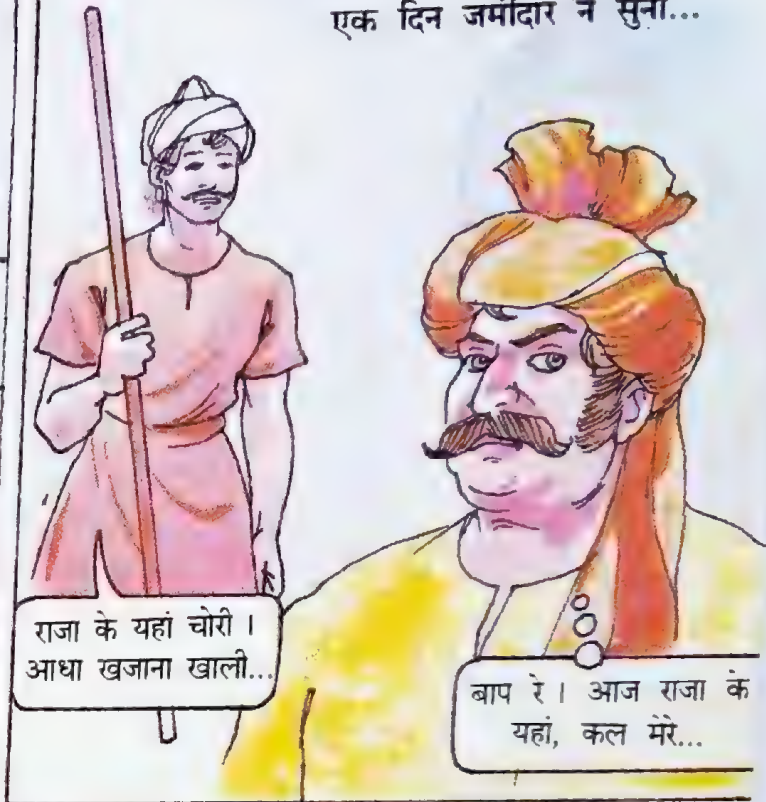 एक दिन जमींदार ने सुना...
राजा के यहां चोरी ।
आधा खजाना खाली...
बाप रे । आज राजा के
यहां, कल मेरे...